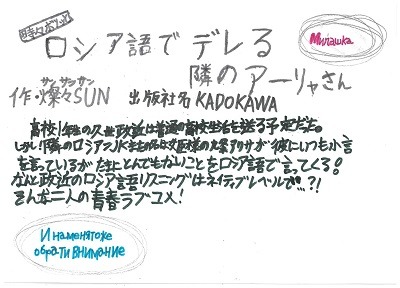 時々ボソッと
ロシア語で デレる
隣のアーリャさん
Милашка
サン サン サン
作・燦々SUN 出版社名 KADOKAWA
高校1年生の久世政近は普通の高校生活を送る予定だった。
しかし!隣のロシアンJK
が彼にいつも小言
を言っているがたまにとんでもないことをロシア語で言ってくる!
なんと政近のロシア語リスニングはネイティブレベルで…?!
そんな二人の青春ラブコメ!
И на меня тоже
обрати внимание